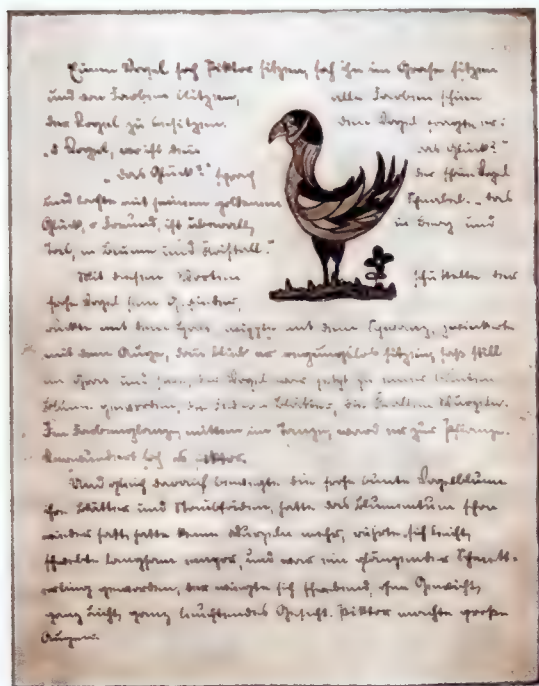 Einen Vogel sah Piktor sitzen, sah ihn im Grase sitzen
und von Farben blitzen, alle Farben schien
der Vogel zu besitzen. Den Vogel fragte er:
„O Vogel, wo ist denn das Glück?"
„Das Glück?" sprach der schöne Vogel
und lachte mit seinem goldenen Schnabel. „Das
Glück, o Freund, ist überall, in Berg und
Tal, in Blume und Kristall."
Mit diesen Worten schüttelte der
frohe Vogel sein Gefieder,
ruckte mit dem Hals, wippte mit dem Schwanz, zwinkerte
mit dem Auge, dann blieb er regungslos sitzen, saß still
im Gras und der Vogel war jetzt zu einer bunten
Blume geworden, die Federn Blätter, die Krallen Wurzeln.
Im Farbenglanze, mitten im Tanze, ward er zur Pflanze.
Verwundert sah es Piktor.
Und gleich darauf bewegte die frohe bunte Vogelblume
ihre Blätter und Staubfäden, hatte das Blumentum schon
wieder satt, hatte keine Wurzeln mehr, rührte sich leicht,
schwebte langsam empor, und war ein glänzender Schmett-
erling geworden, der wiegte sich schwebend, ohne Gewicht,
ganz Licht, ganz leuchtendes Gesicht. Piktor machte große
Augen.